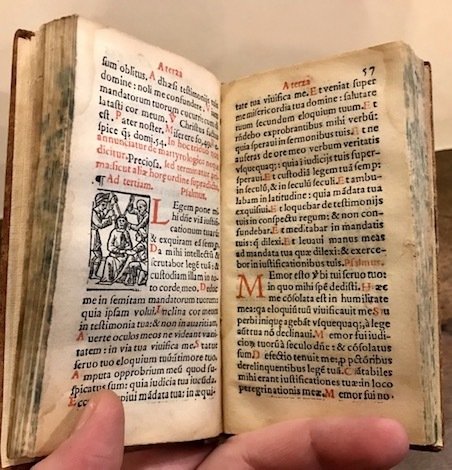 A terza
sum oblitus. A dhæsi testimonijs tuis
domine: noli me confundere.
mandatorum tuorum cucurri: cum di
latasti cor meum.
est. Pater noster. Miserere
spice
annunciatur de martyrologio
dicitur. Preciosa.
Psalmus.
¶Ad tertiam.
LEgem pone mi
hi dñe viã iustifi
cationum tuarũ
& exquiram eã semp
Da mihi intellectũ &
scrutabor legẽ tuã: &
custodiam illam in to
to corde meo. Deduc
me in semitam mandatorum tuorum
quia ipsam volui. Inclina cor meum
in testimonia tua: & non in auaritiam.
Auerte oculos meos ne videant vani
tatem: in via tua viuifica me. Statue
seruo tuo eloquium tuũ: in timore tuo.
Amputa opprobrium meũ quod su
spicatus sum: quia iudicia tua iucũda.
Ecce mãdata tua: in æqui
A terza 57
tate tua viuifica me. Et veniat super
me misericordia tua domine: salutare
tuum secundum eloquium tuum. Et
rñdebo exprobrantibus mihi verbũ:
quia speraui in sermonibus tuis. Et ne
auferas de ore meo verbum veritatis
vsquequaq; : quia ĩ iudicijs tuis super
speraui. Et custodiã legem tuã semp:
in seculũ, & in seculũ seculi. Et ambu
labam in latitudine: quia mãdata tua
exquisiui. Et loquebar de testimonijs
tuis in conspectu regum: & non con
fundebar. Et meditabar in mandatis
tuis: q̃ dilexi. Et leuaui manus meas
ad mandata tua quæ dilexi: & exerce
bor in iustificationibus tuis. Psalmus.
MEmor esto ṽbi tui seruo tuo:
in quo mihi spẽ dedisti. Hæc
me cõsolata est in humilitate
mea: qa eloquiũ tuũ viuificauit me Su
perbi iniq; agebãt vsquequaq;, a lege
aũt tua nõ declinaui. Memor fui iudi
ciorũ tuorũ a seculo dñe: & cõsolatus
sum. Defectio tenuit me, p pctõribus
derelinquentibus legẽ tuã. Cãtabiles
mihi erant iustificationes tuæ: in loco
peregrinationis meæ. Memor fui no